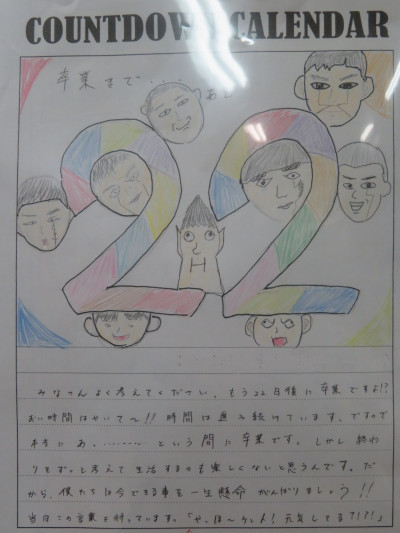 COUNTDOWN CALENDAR
卒業まで・・・・あと
22
みなさんよく考えてください。もう22日後に卒業ですよ!?
おい時間はやいて〜!! 時間は進み続けています。ですので
本当にあ、………… という間に卒業です。しかし終わ
りをずっと考えて生活するのも楽しくないと思うんです。だ
から、僕たちは今できる事を一生懸命がんばりましょう!!
当日この言葉を待っています。「やっほ〜ケント!元気してる?!?!」